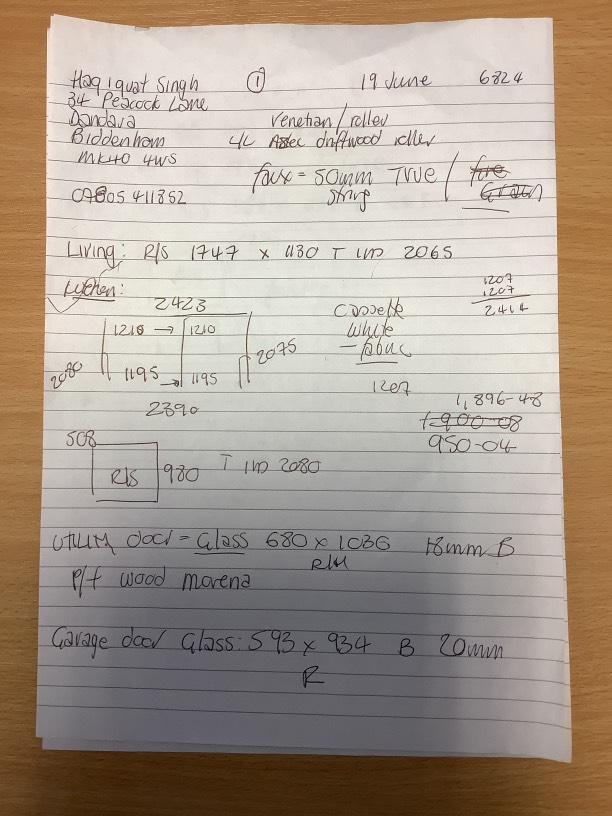 Haqiquat Singh ① 19 June 6824
34 Peacock Lane
Dandara Venetian/roller
Biddenham Aztec driftwood roller
MK40 4WS
faux = 50mm True / fine
string Grain
07805 411852
Living: R/S 1747 x 1130 T 2065
1207
1207
2414
Kitchen:
2423 Cassette
1210 → 1210 white
2080 2075 - fabric
1195 → 1195
1207
2390
1,896-48
1-900-08
950-04
508
R/S 980 T 2080
UTILITY door = Glass 680 x 1036 18mm B
P/f wood morena
Garage door Glass: 593 x 934 B 20mm
R